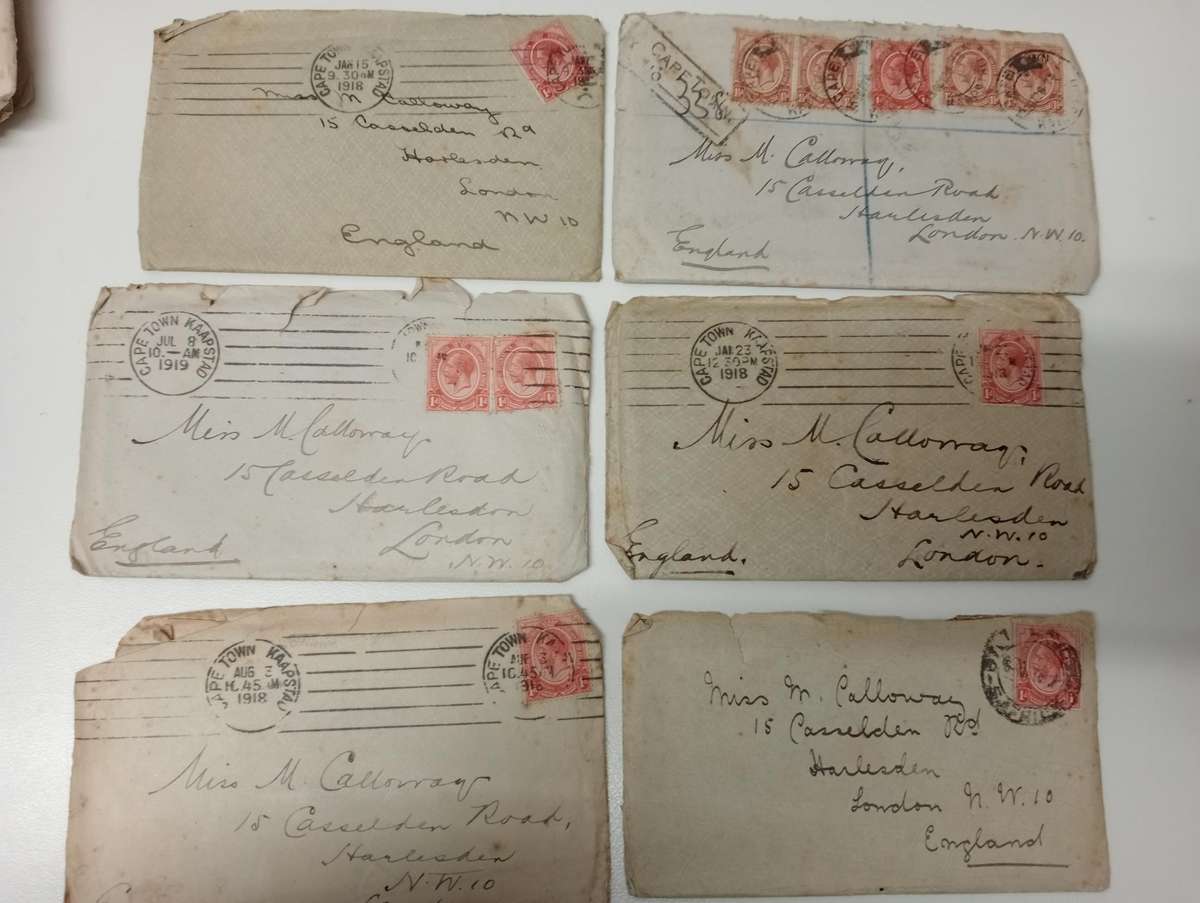 CAPE TOWN KAAPSTAD
JAN 15
9.30 AM
1918
Miss M Calloway
15 Casselden Rd
Harlesden
London
NW 10
England
CAPE TOWN
Miss M. Calloway,
15 Casselden Road
Harlesden
London. N.W. 10.
England
CAPE TOWN KAAPSTAD
JUL 8
10.— AM
1919
1d 1d
Miss M. Calloway
15 Casselden Road
Harlesdon
London
N.W. 10
England
CAPE TOWN KAAPSTAD
JAN 23
12 30 PM
1918
Miss M. Calloway,
15 Casselden Road
Harlesden
N.W. 10
London.
England.
CAPE TOWN KAAPSTAD
AUG 3
10.45 AM
1918
CAPE TOWN
AUG 3
10.45
1918
Miss M. Calloway
15 Casselden Road,
Harlesden
N.W. 10
Miss M. Calloway
15 Casselden Rd
Harlesden
London N.W. 10
England